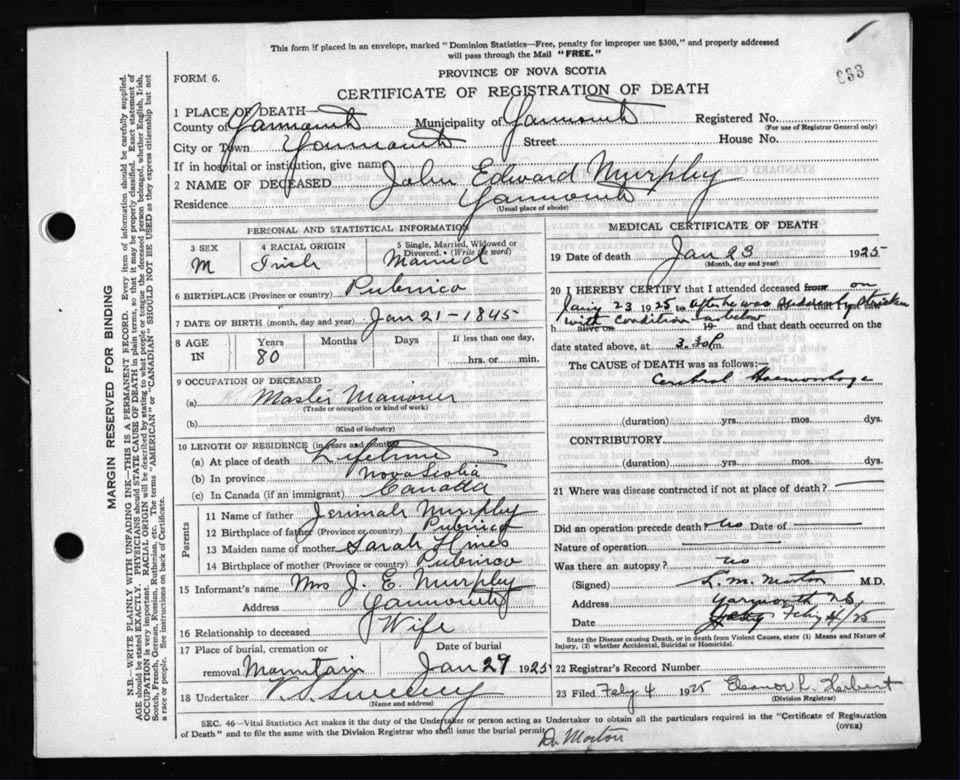 This form if placed in an envelope, marked "Dominion Statistics—Free, penalty for improper use $300," and properly addressed
will pass through the Mail "FREE."
FORM 6.
PROVINCE OF NOVA SCOTIA
CERTIFICATE OF REGISTRATION OF DEATH
1 PLACE OF DEATH
County of Yarmouth Municipality of Yarmouth Registered No.
(For use of Registrar General only)
City or Town Yarmouth Street House No.
If in hospital or institution, give name
2 NAME OF DECEASED John Edward Murphy
Residence Yarmouth
(Usual place of abode)
PERSONAL AND STATISTICAL INFORMATION
3 SEX 4 RACIAL ORIGIN 5 Single, Married, Widowed or
Divorced. (Write the word)
M Irish Married
6 BIRTHPLACE (Province or country) Pubnico
7 DATE OF BIRTH (month, day and year) Jan 21 - 1845
8 AGE IN Years Months Days If less than one day,
80 hrs. or min.
9 OCCUPATION OF DECEASED
(a) Master Mariner
(Trade or occupation or kind of work)
(b)
(Kind of industry)
10 LENGTH OF RESIDENCE (in years and months)
(a) At place of death Lifetime
(b) In province Nova Scotia
(c) In Canada (if an immigrant) Canada
Parents
11 Name of father Jerimah Murphy
12 Birthplace of father (Province or country) Pubnico
13 Maiden name of mother Sarah Hines
14 Birthplace of mother (Province or country) Pubnico
15 Informant's name Mrs J. E. Murphy
Address Yarmouth
16 Relationship to deceased Wife
17 Place of burial, cremation or Date of burial
removal Mountain Jan 29 1925
18 Undertaker V. S. Sweeny
(Name and address)
MEDICAL CERTIFICATE OF DEATH
19 Date of death Jan 23 1925
(Month, day and year)
20 I HEREBY CERTIFY that I attended deceased from on
Jany 23 1925 to after he was suddenly stricken that I last saw
with condition as below
h alive on 19 and that death occurred on the
date stated above, at 3.30 P.m.
The CAUSE OF DEATH was as follows:
Cerebral Haemorrhage
(duration) yrs. mos. dys.
CONTRIBUTORY
(duration) yrs. mos. dys.
21 Where was disease contracted if not at place of death?
Did an operation precede death? No Date of
Nature of operation
Was there an autopsy? no
(Signed) L. M. Morton M.D.
Address Yarmouth N.S.
Date Feby 4/25
State the Disease causing Death, or in death from Violent Causes, state (1) Means and Nature of
Injury, (2) whether Accidental, Suicidal or Homicidal.
22 Registrar's Record Number
23 Filed Feby 4 1925 Eleanor L. Herbert
(Division Registrar)
SEC. 46—Vital Statistics Act makes it the duty of the Undertaker or person acting as Undertaker to obtain all the particulars required in the "Certificate of Registration
of Death" and to file the same with the Division Registrar who shall issue the burial permit.
(OVER)
Dr. Morton
MARGIN RESERVED FOR BINDING
N.B.—WRITE PLAINLY WITH UNFADING INK—THIS IS A PERMANENT RECORD. Every item of information should be carefully supplied.
AGE should be stated EXACTLY. PHYSICIANS should STATE CAUSE OF DEATH in plain terms, so that it may be properly classified. Exact statement of
OCCUPATION is very important. RACIAL ORIGIN will be described by stating to what people or race the deceased person belonged, whether English, Irish,
Scotch, French, German, Russian, Ruthenian, etc. The terms "AMERICAN" or "CANADIAN" SHOULD NOT BE USED as they express citizenship but not
a race or people. See instructions on back of Certificate.